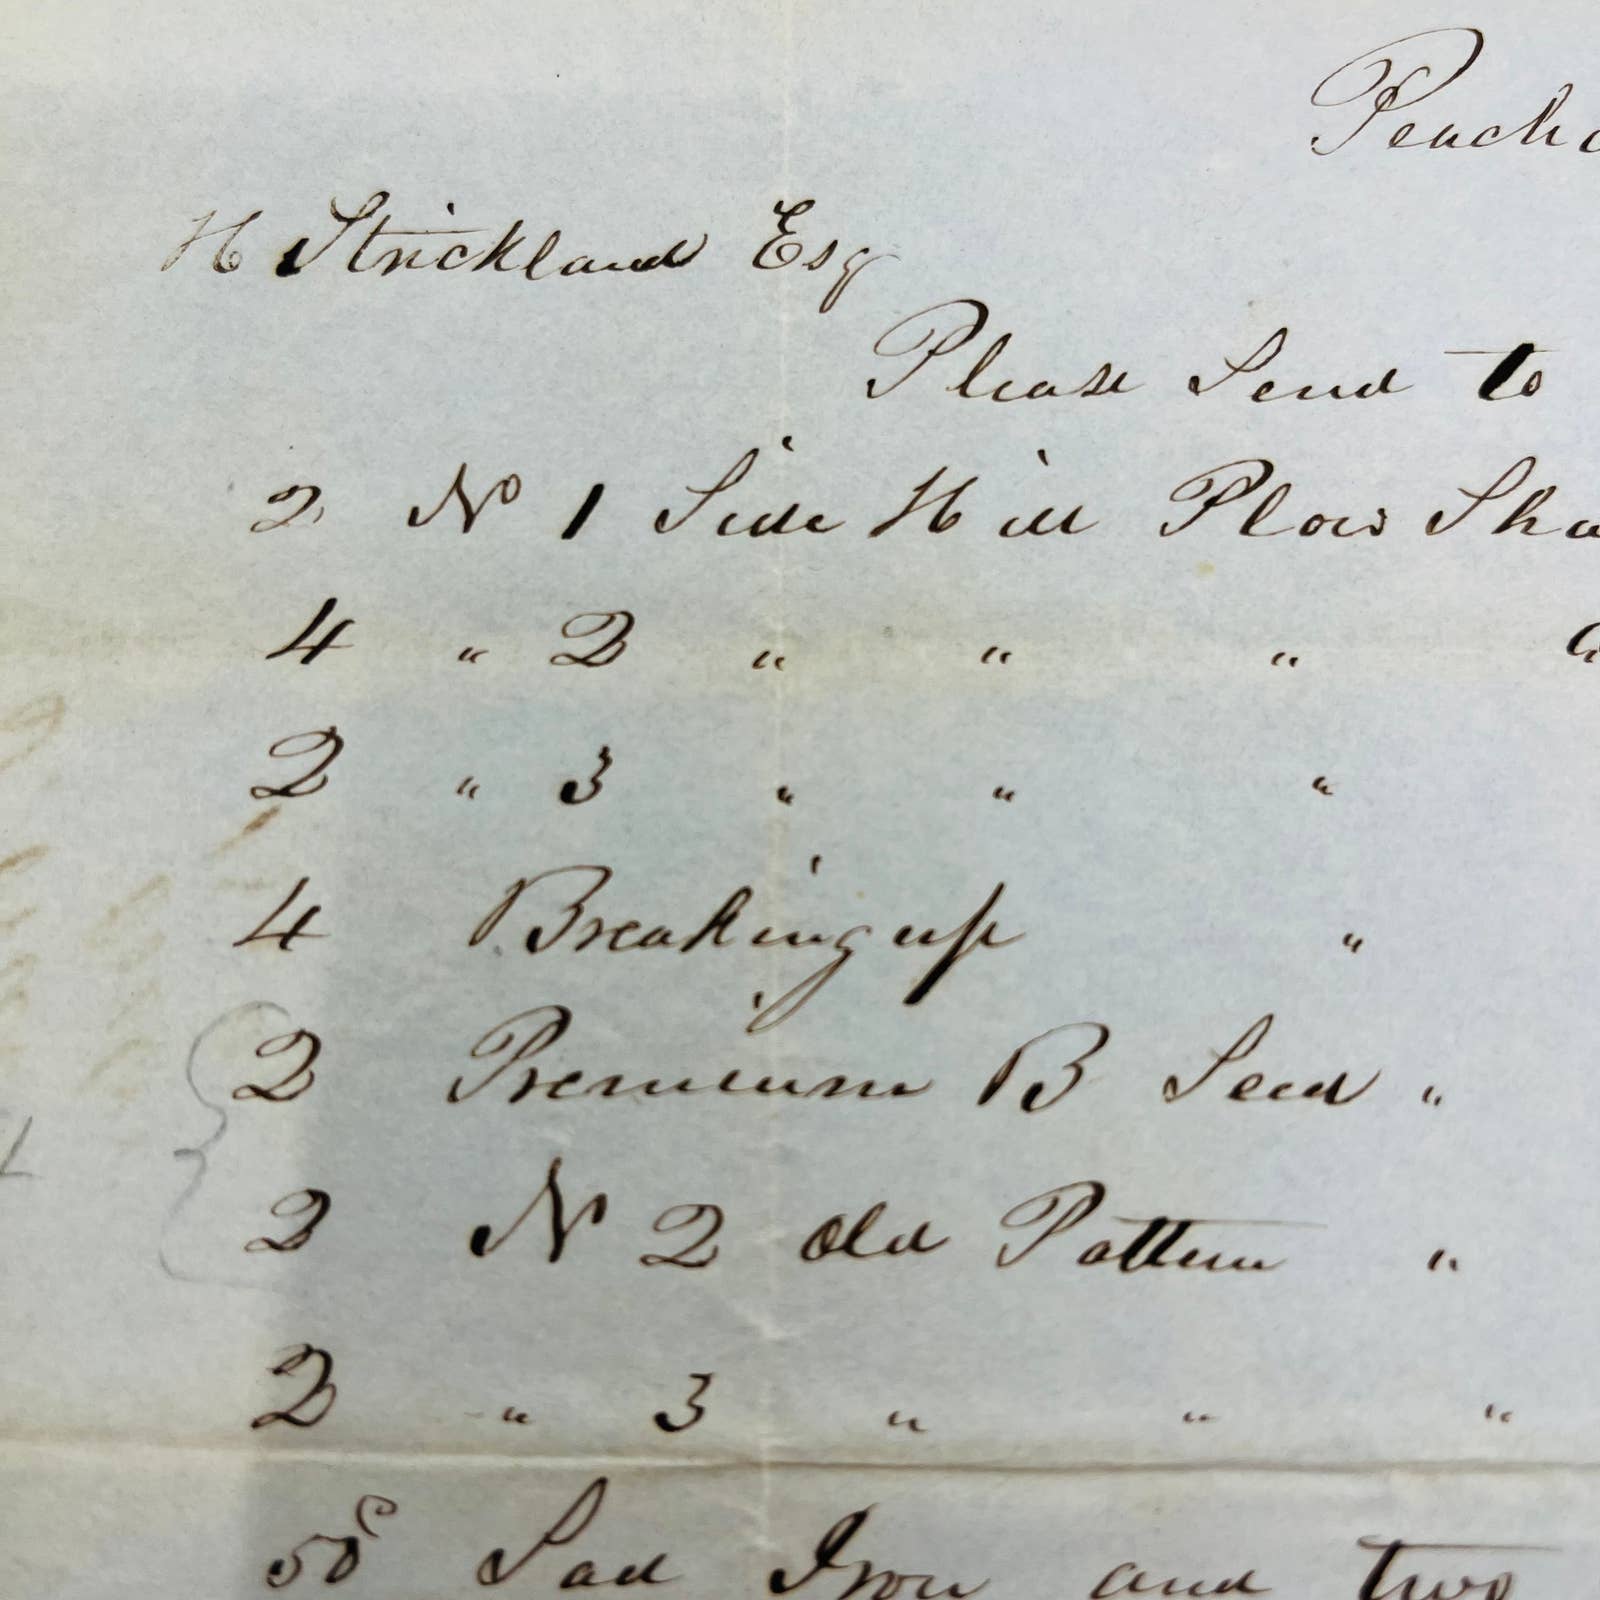 Peach
H Strickland Esq
Please Send to
2 No 1 Side Hill Plow Sha
4 " 2 " " "
2 " 3 " " "
4 Breaking up "
2 Premium B Seed "
2 N 2 Old Pattern "
2 " 3 " " "
58 Sad Iron and two